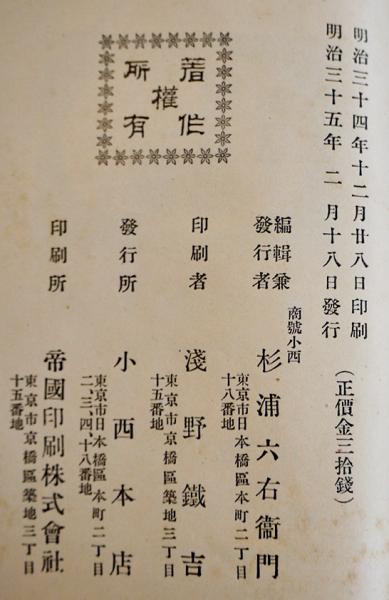 明治三十四年十二月廿八日印刷
明治三十五年二月十八日發行
(正價金三拾錢)
著作
權
所有
編輯兼
發行者
商號小西
杉浦六右衞門
東京市日本橋區本町二丁目
十八番地
印刷者
淺野鐵吉
東京市京橋區築地三丁目
十五番地
發行所
小西本店
東京市日本橋區本町二丁目
二、三、四、十八番地
印刷所
帝國印刷株式會社
東京市京橋區築地三丁目
十五番地